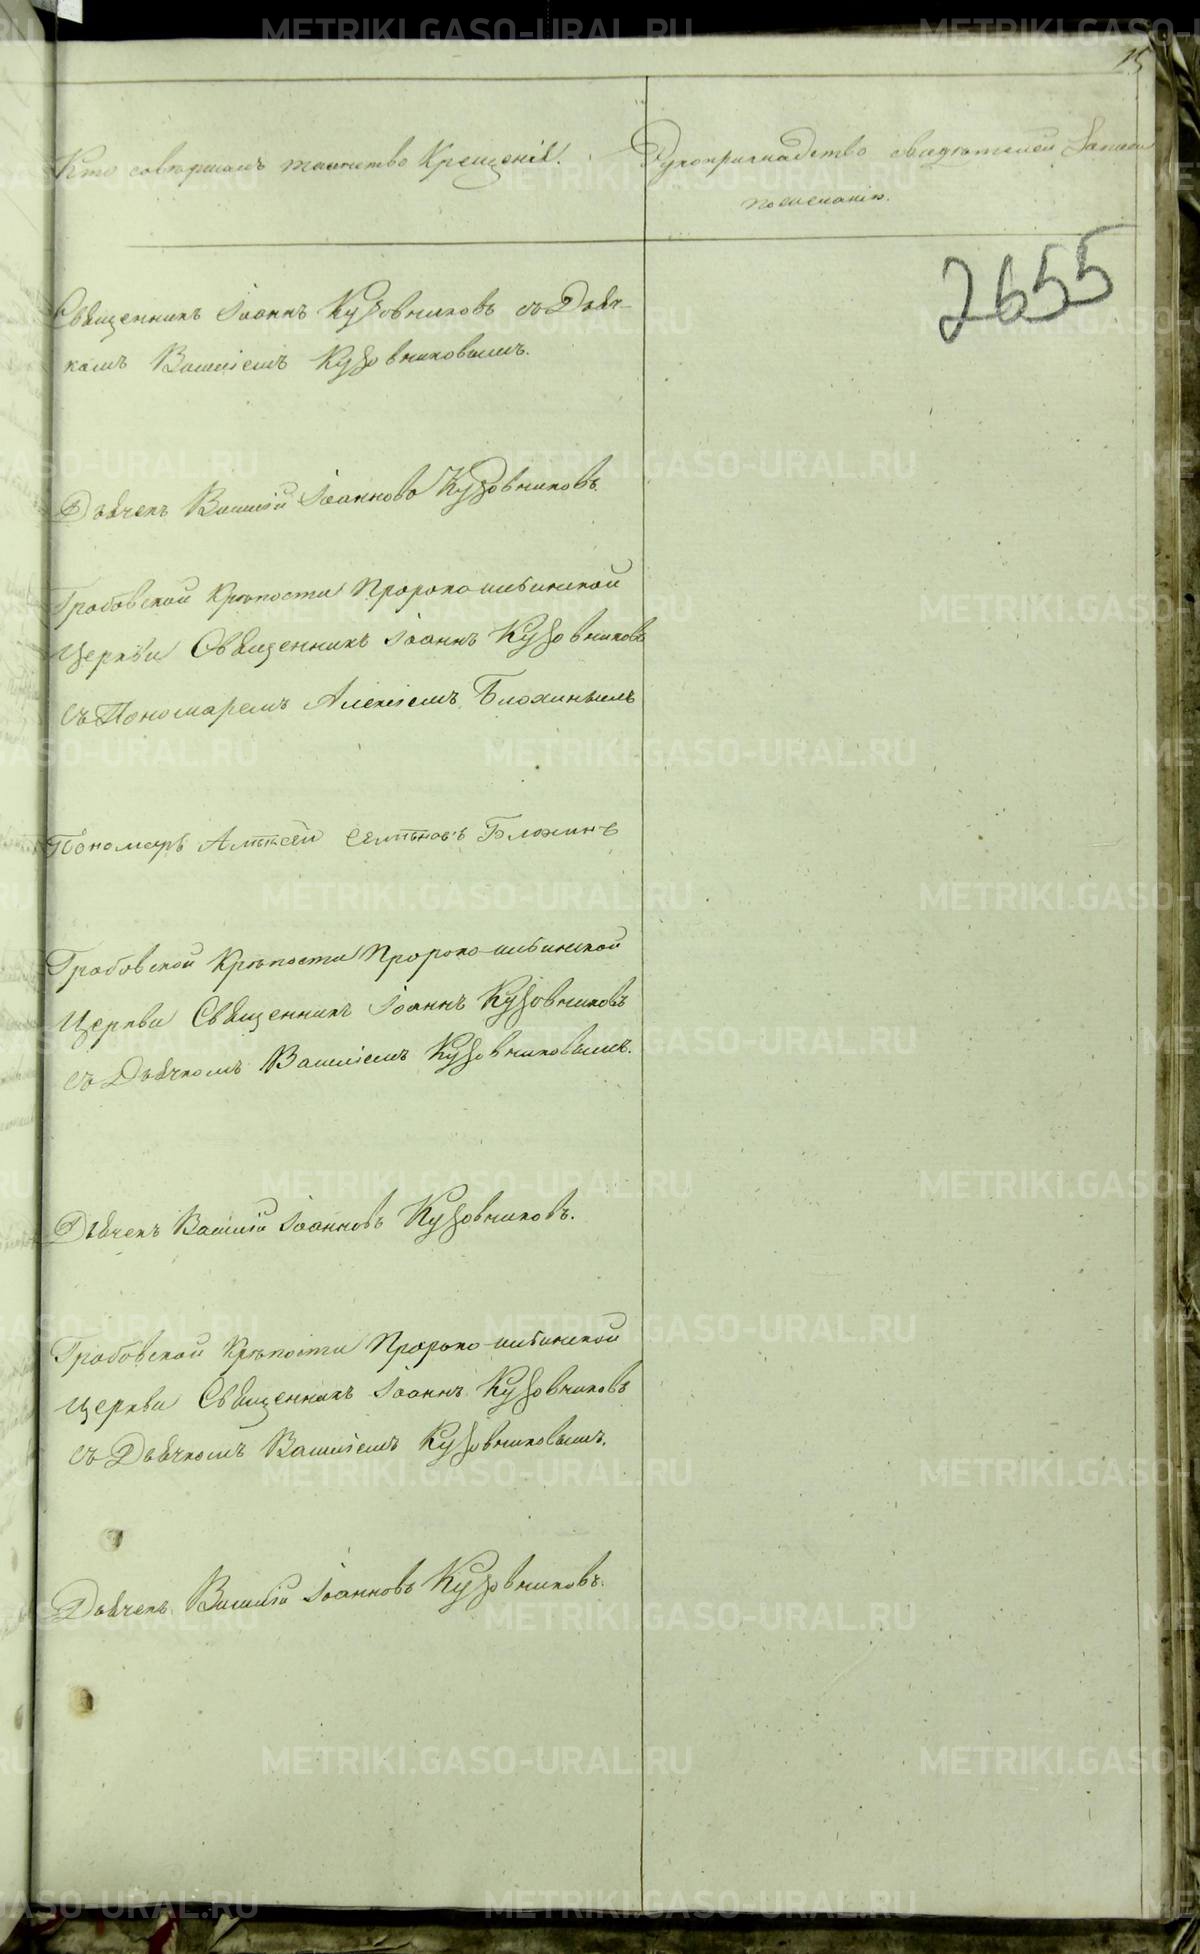 15
Кто совершалъ таинство Крещенія.
Рукоприкладство свидѣтелей записи
по желанію.
2655
Священникъ Іоаннъ Кузовниковъ съ Дьяч-
комъ Василіемъ Кузовниковымъ.
Дьячекъ Василій Іоанновъ Кузовниковъ.
Грабовской Крѣпости Пророко-ильинской
Церкви Священникъ Іоаннъ Кузовниковъ
съ Пономаремъ Алексіемъ Блохинымъ
Пономарь Алексей Семеновъ Блохинъ
Грабовской Крѣпости Пророко-ильинской
Церкви Священникъ Іоаннъ Кузовниковъ
съ Дьячкомъ Василіемъ Кузовниковымъ.
Дьячекъ Василій Іоанновъ Кузовниковъ.
Грабовской Крѣпости Пророко-ильинской
Церкви Священникъ Іоаннъ Кузовниковъ
съ Дьячкомъ Василіемъ Кузовниковымъ.
Дьячекъ Василій Іоанновъ Кузовниковъ.
METRIKI.GASO-URAL.RU